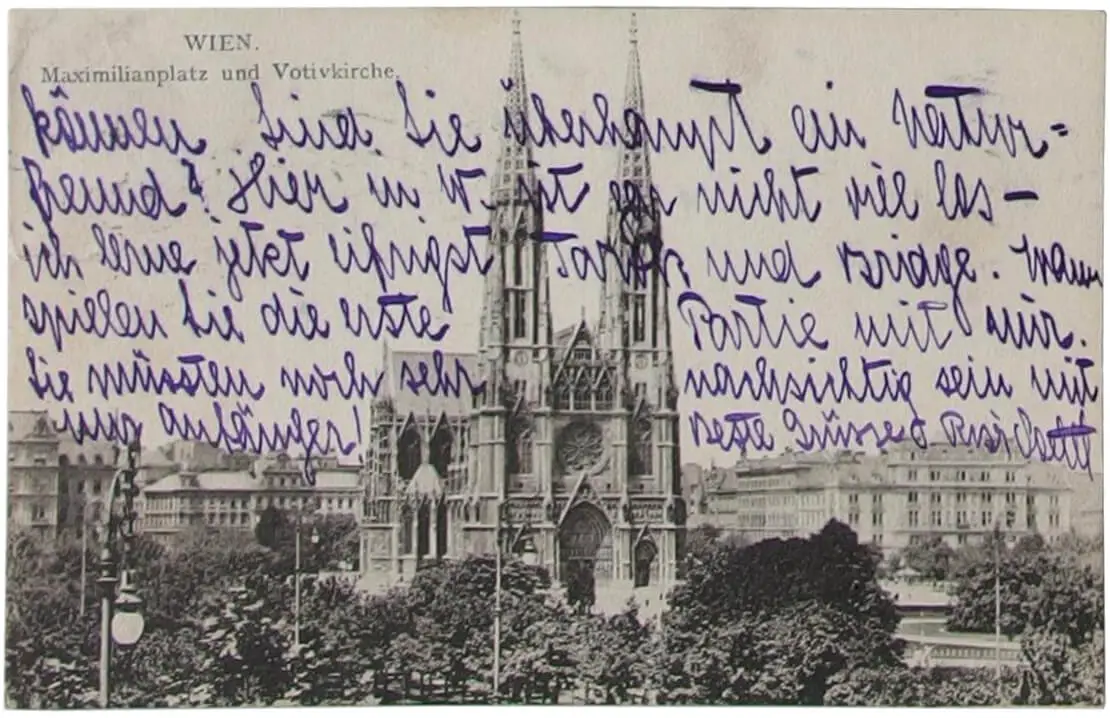 WIEN.
Maximilianplatz und Votivkirche.
können. Sind Sie überhaupt ein Natur=
freund? Hier in W. ist gar nicht viel los –
ich lerne jetzt eifrigst und Bridge. Wann
spielen Sie die erste Partie mit mir.
Sie müssten noch sehr nachsichtig sein mit
mir Anfänger! Beste Grüsse